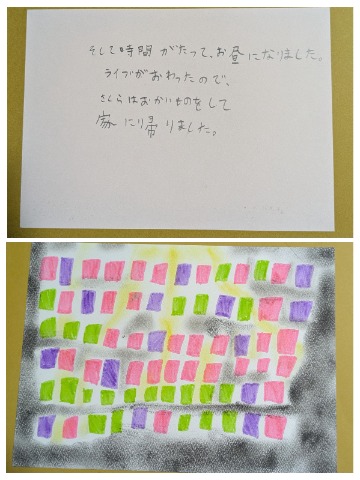 そして時間がたって、お昼になりました。
ライブがおわったので、
さくらはおかいものをして
家に帰りました。